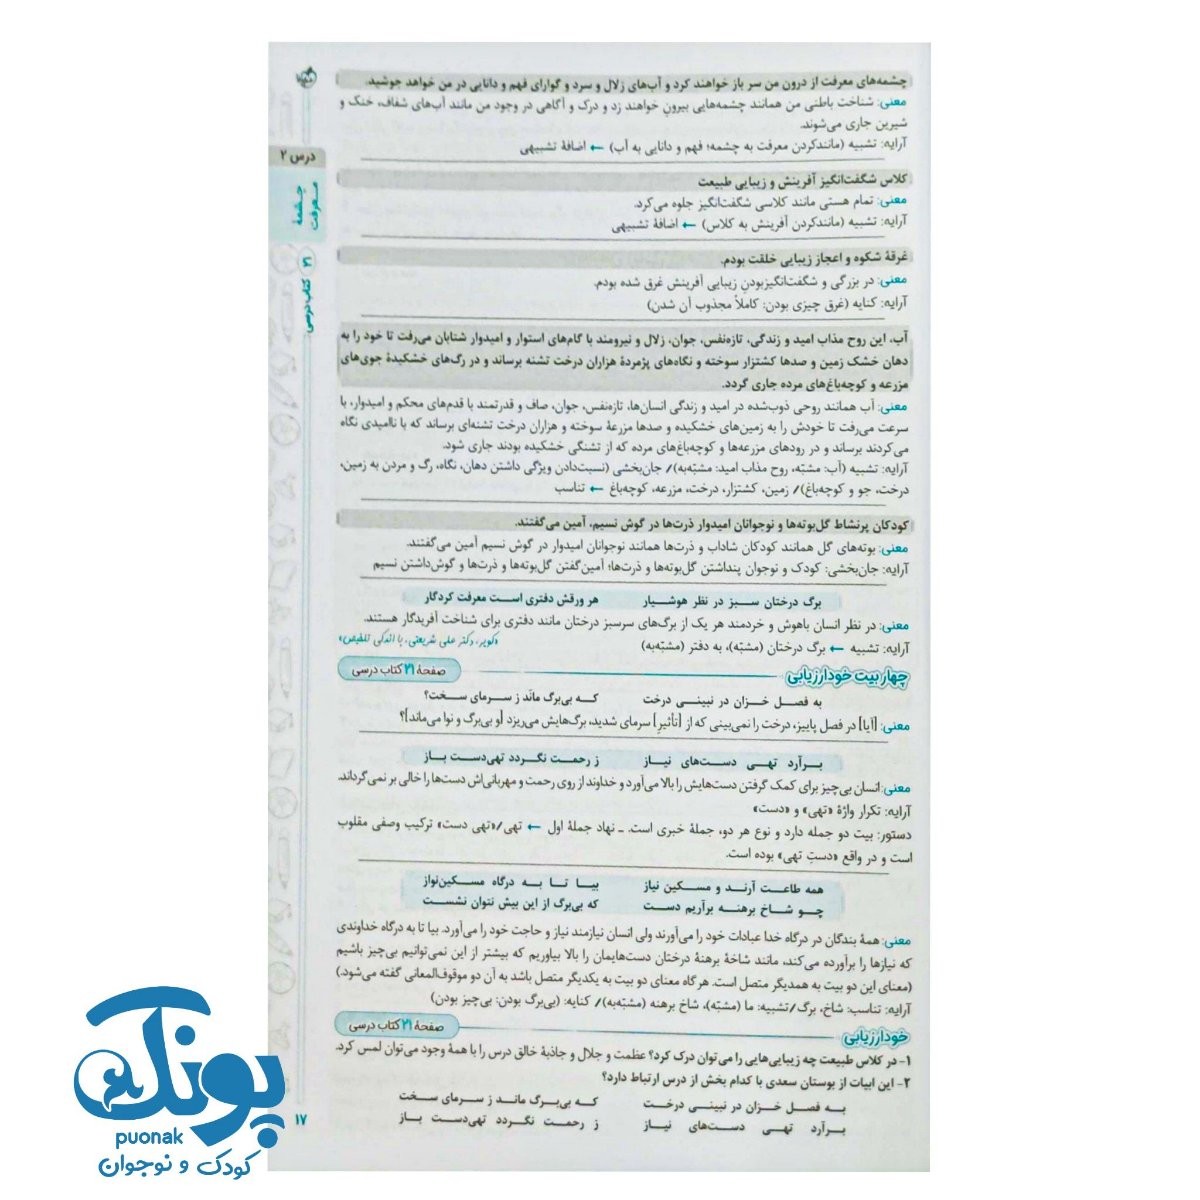 چشمه‌های معرفت از درون من سر باز خواهند کرد و آب‌های زلال و سرد و گوارای فهم و دانایی در من خواهد جوشید.
معنی: شناخت باطنی من همانند چشمه‌هایی بیرون خواهند زد و درک و آگاهی در وجود من مانند آب‌های شفاف، خنک و
شیرین جاری می‌شوند.
آرایه: تشبیه (مانندکردن معرفت به چشمه؛ فهم و دانایی به آب) ← اضافهٔ تشبیهی
کلاس شگفت‌انگیز آفرینش و زیبایی طبیعت
معنی: تمام هستی مانند کلاسی شگفت‌انگیز جلوه می‌کرد.
آرایه: تشبیه (مانندکردن آفرینش به کلاس) ← اضافهٔ تشبیهی
غرقهٔ شکوه و اعجاز زیبایی خلقت بودم.
معنی: در بزرگی و شگفت‌انگیزبودن زیبایی آفرینش غرق شده بودم.
آرایه: کنایه (غرق چیزی بودن: کاملاً مجذوب آن شدن)
آب، این روح مذاب امید و زندگی، تازه‌نفس، جوان، زلال و نیرومند با گام‌های استوار و امیدوار شتابان می‌رفت تا خود را به
دهان خشک زمین و صدها کشتزار سوخته و نگاه‌های پژمردهٔ هزاران درخت تشنه برساند و در رگ‌های خشکیدهٔ جوی‌های
مزرعه و کوچه‌باغ‌های مرده جاری گردد.
معنی: آب همانند روحی ذوب‌شده در امید و زندگی انسان‌ها، تازه‌نفس، جوان، صاف و قدرتمند با قدم‌های محکم و امیدوار، با
سرعت می‌رفت تا خودش را به زمین‌های خشکیده و صدها مزرعهٔ سوخته و هزاران درخت تشنه‌ای برساند که با ناامیدی نگاه
می‌کردند برساند و در رودهای مزرعه‌ها و کوچه‌باغ‌های مرده که از تشنگی خشکیده بودند جاری شود.
آرایه: تشبیه (آب: مشبّه، روح مذاب امید: مشبّه‌به)/ جان‌بخشی (نسبت‌دادن ویژگی داشتن دهان، نگاه، رگ و مردن به زمین،
درخت، جو و کوچه‌باغ)/ زمین، کشتزار، درخت، مزرعه، کوچه‌باغ ← تناسب
کودکان پرنشاط گل‌بوته‌ها و نوجوانان امیدوار ذرت‌ها در گوش نسیم، آمین می‌گفتند.
معنی: بوته‌های گل همانند کودکان شاداب و ذرت‌ها همانند نوجوانان امیدوار در گوش نسیم آمین می‌گفتند.
آرایه: جان‌بخشی: کودک و نوجوان پنداشتن گل‌بوته‌ها و ذرت‌ها؛ آمین‌گفتن گل‌بوته‌ها و ذرت‌ها و گوش‌داشتن نسیم
برگ درختان سبز در نظر هوشیار هر ورقش دفتری است معرفت کردگار
معنی: در نظر انسان باهوش و خردمند هر یک از برگ‌های سرسبز درختان مانند دفتری برای شناخت آفریدگار هستند.
آرایه: تشبیه ← برگ درختان (مشبّه)، به دفتر (مشبّه‌به)
«کویر، دکتر علی شریعتی، با اندکی تلخیص»
چهار بیت خودارزیابی
صفحهٔ ۲۱ کتاب درسی
به فصل خزان در نبینی درخت که بی‌برگ مانَد ز سرمای سخت؟
معنی: [آیا] در فصل پاییز، درخت را نمی‌بینی که از [تأثیر] سرمای شدید، برگ‌هایش می‌ریزد [و بی‌برگ و نوا می‌ماند]؟
برآرد تهی دست‌های نیاز ز رحمت نگردد تهی‌دست باز
معنی: انسان بی‌چیز برای کمک گرفتن دست‌هایش را بالا می‌آورد و خداوند از روی رحمت و مهربانی‌اش دست‌ها را خالی بر نمی‌گرداند.
آرایه: تکرار واژهٔ «تهی» و «دست»
دستور: بیت دو جمله دارد و نوع هر دو، جملهٔ خبری است. ـ نهاد جملهٔ اول ← تهی/«تهی دست» ترکیب وصفی مقلوب
است و در واقع «دستِ تهی» بوده است.
همه طاعت آرند و مسکین نیاز بیا تا به درگاه مسکین‌نواز
چو شاخ برهنه برآریم دست که بی‌برگ از این بیش نتوان نشست
معنی: همهٔ بندگان در درگاه خدا عبادات خود را می‌آورند ولی انسان نیازمند نیاز و حاجت خود را می‌آورد. بیا تا به درگاه خداوندی
که نیازها را برآورده می‌کند، مانند شاخهٔ برهنهٔ درختان دست‌هایمان را بالا بیاوریم که بیشتر از این نمی‌توانیم بی‌چیز باشیم
(معنای این دو بیت به همدیگر متصل است. هرگاه معنای دو بیت به یکدیگر متصل باشد به آن دو موقوف‌المعانی گفته می‌شود.)
آرایه: تناسب: شاخ، برگ/ تشبیه: ما (مشبّه)، شاخ برهنه (مشبّه‌به)/ کنایه: (بی‌برگ بودن: بی‌چیز بودن)
خودارزیابی
صفحهٔ ۲۱ کتاب درسی
۱- در کلاس طبیعت چه زیبایی‌هایی را می‌توان درک کرد؟ عظمت و جلال و جاذبهٔ خالق درس را با همهٔ وجود می‌توان لمس کرد.
۲- این ابیات از بوستان سعدی با کدام بخش از درس ارتباط دارد؟
به فصل خزان در نبینی درخت که بی‌برگ ماند ز سرمای سخت
برآرد تهی دست‌های نیاز ز رحمت نگردد تهی‌دست باز
درس ۲
چشمهٔ
معرفت
۲۱ کتاب درسی
۱۷
پونک
puonak
کودک و نوجوان